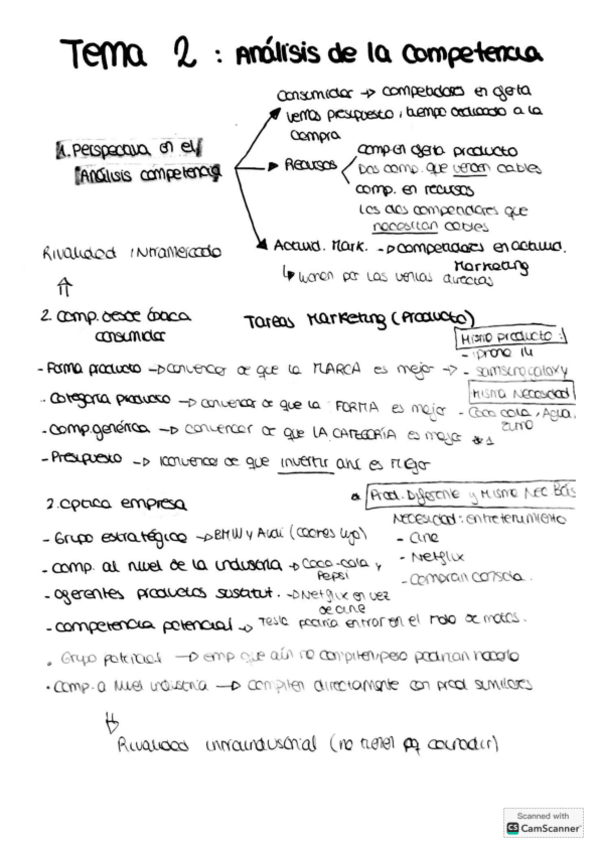 Tema 2 : Análisis de la Competencia
Consumidor → competidores en oferta
vemos presupuesto, tiempo dedicado a la
compra
1. Perspectiva en el
Análisis competencia
Recursos
comp en oferta producto
Dos comp. que venden cables
comp. en recursos
Los dos competidores que
necesitan cables
Rivalidad intramercado
Activid. Mark. → competidores en activid.
Marketing
por las ventas directas
2. comp. desde óptica
consumidor
Tareas Marketing (Producto)
Mismo producto :
- iphone 14
- Forma producto → convencer de que la MARCA es mejor → - samsung galaxy
Misma Necesidad
- Categoría producto → convencer de que la FORMA es mejor - Coca cola, Agua,
zumo
- Comp. genérica → convencer de que LA CATEGORÍA es mejor *1
- Presupuesto → convencer de que invertir ahí es mejor
Prod. Diferente y Misma Nec Bás
2. óptica empresa
Necesidad: entretenimiento
- Grupo estratégico → BMW y Audi (coches lujo)
- Cine
- Netflix
- comp. al nivel de la industria → Coca-cola y
Pepsi
- compran consola.
- oferentes productos sustitut. → Netflix en vez
de cine
- competencia potencial → Tesla podría entrar en el de motos.
. Grupo potencial → emp que aún no compiten, pero podrían hacerlo
. Comp. a nivel industria → compiten directamente con prod similares
Rivalidad intraindustrial (no tienen pq coincidir)
Scanned with
CS CamScanner